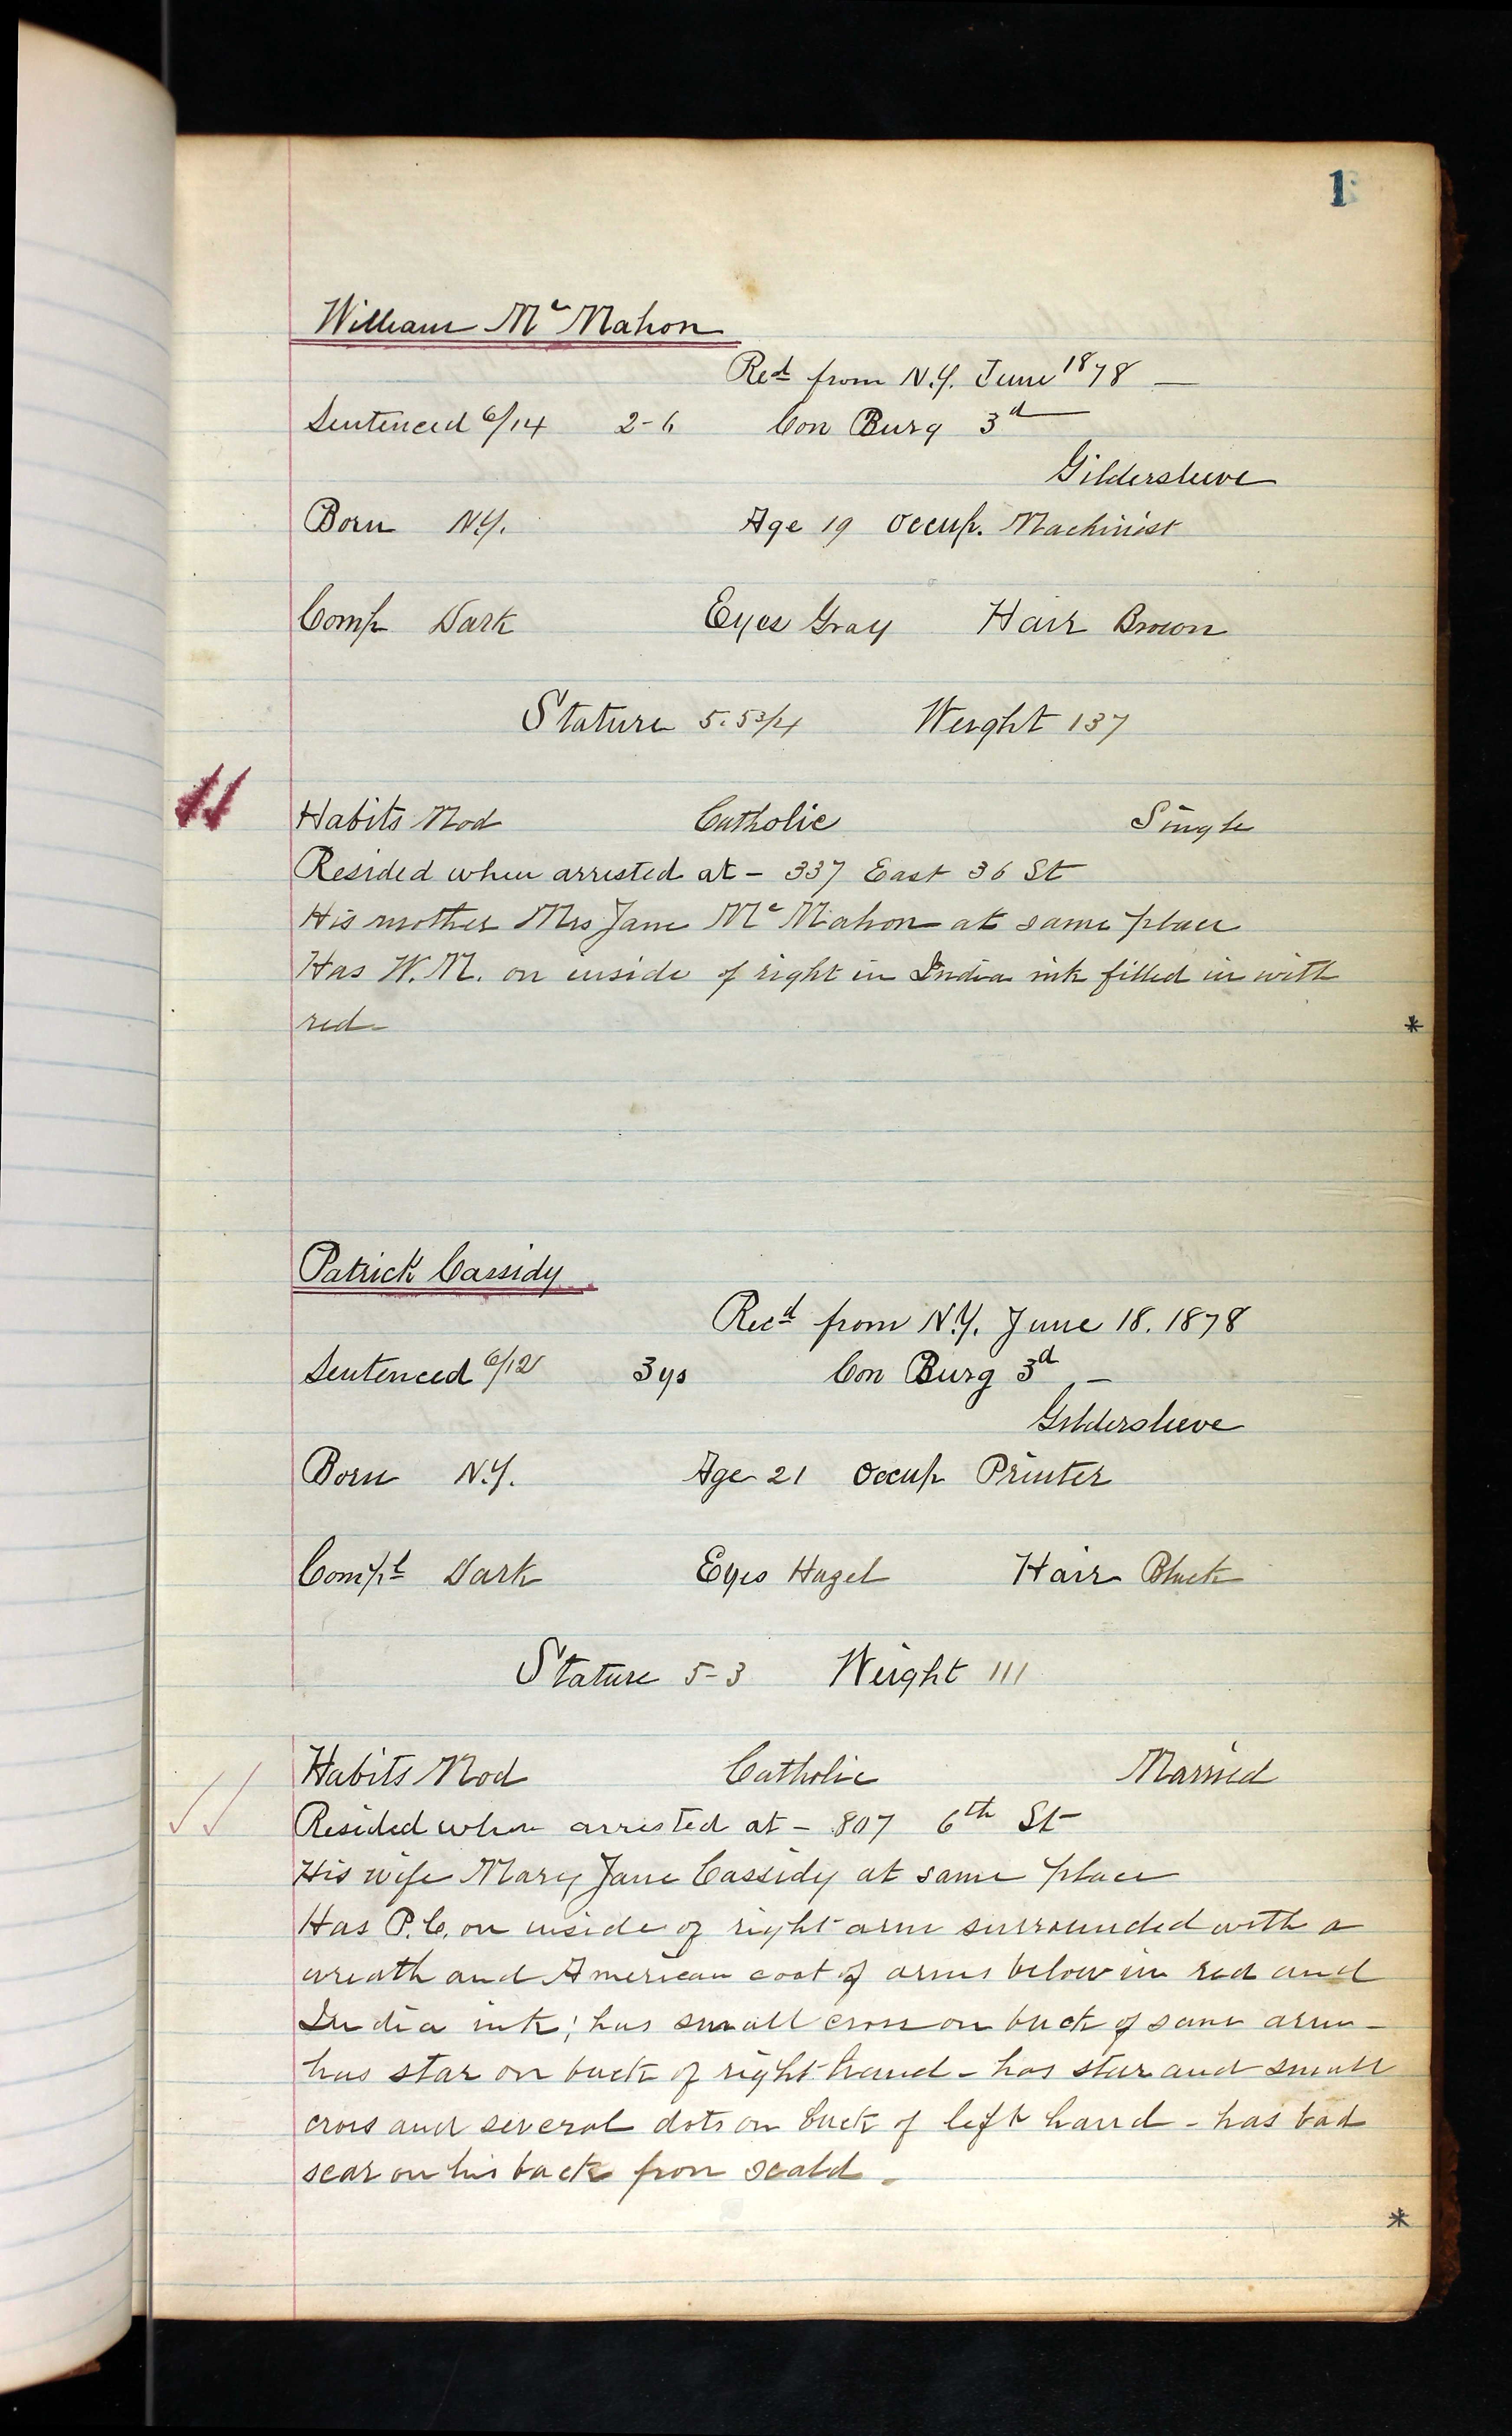 1
William Mc Mahon
Recd from N.Y. June 18 78 —
Sentenced 6/14 2-6 Con Burg 3d
Gildersleeve
Born N.Y. Age 19 Occup. Machinist
Comp Dark Eyes Gray Hair Brown
Stature 5.5 3/4 Weight 137
Habits Mod Catholic Single
Resided when arrested at - 337 East 36 St
His mother Mrs Jane Mc Mahon at same place
Has W.M. on inside of right in India ink filled in with
red
*
Patrick Cassidy
Recd from N.Y. June 18. 1878
Sentenced 6/12 3 ys Con Burg 3d -
Gildersleeve
Born N.Y. Age 21 Occup Printer
Dark Eyes Hazel Hair Black
Stature 5-3 Weight 111
Habits Mod Catholic Married
Resided when arrested at - 807 6th St
His wife Mary Jane Cassidy at same place
Has P.C. on inside of right arm surrounded with a
wreath and American coat of arms below in red and
India ink; has small cross on back of same arm -
has star on back of right hand - has star and small
cross and several dots on back of left hand - has bad
scar on his back from scald -
*